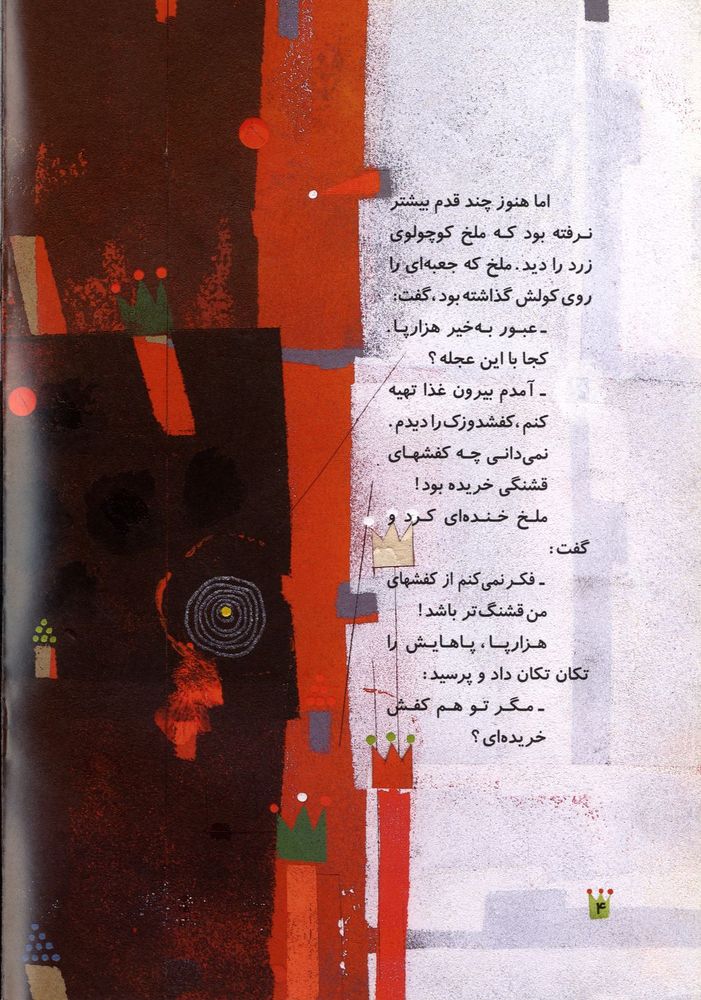 اما هنوز چند قدم بیشتر
نرفته بود که ملخ کوچولوی
زرد را دید. ملخ که جعبه‌ای را
روی کولش گذاشته بود، گفت:
ـ عبور به‌خیر هزارپا.
کجا با این عجله؟
ـ آمدم بیرون غذا تهیه
کنم، کفشدوزک را دیدم.
نمی‌دانی چه کفشهای
قشنگی خریده بود!
ملخ خنده‌ای کرد و
گفت:
ـ فکر نمی‌کنم از کفشهای
من قشنگ‌تر باشد!
هزارپا، پاهایش را
تکان تکان داد و پرسید:
ـ مگر تو هم کفش
خریده‌ای؟
۴